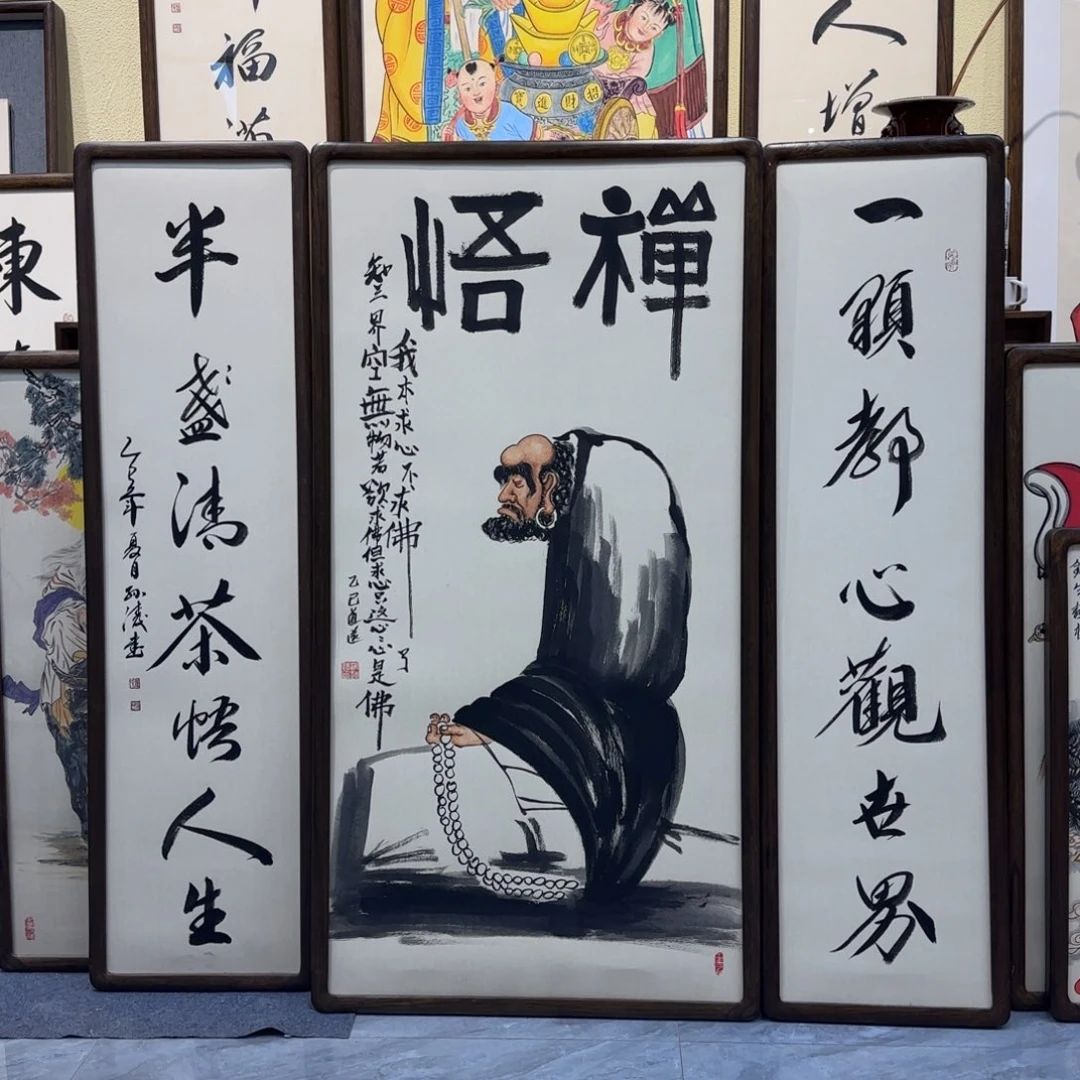 人增
招財進寶
福满
一顆靜心觀世界
禪悟
我本求心不求佛了
知三界空無物若欲求佛但求心只这心心心是佛
乙巳
半盞清茶悟人生
乙巳年夏月孙涛书
東